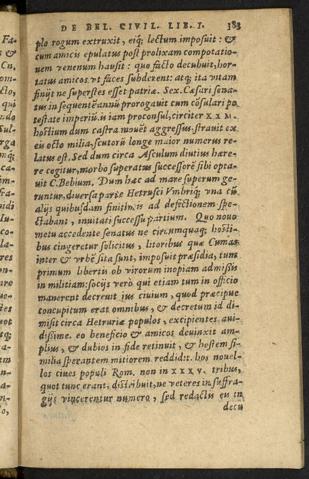 DE BEL. CIVIL. LIB. I. 383
plo rogum extruxit, eiq; lectum imposuit: &
cum amicis epulatus post prolixam compotatio-
nem venenum hausit: quo facto decubuit, hor-
tatus amicos vt faces subderent: atq; ita vitam
finijt ne superstes esset patriæ. Sex. Cæsari sena-
tus in sequentē annū prorogauit cum cōsulari po
testate imperiū. is iam proconsul, circiter XX M.
hostium dum castra mouēt aggressus, strauit ex
eis octo milia, scutorū longe maior numerus re-
latus est. Sed dum circa Asculum diutius hære-
re cogitur, morbo superatus successorē sibi opta-
uit C. Bebium. Dum hæc ad mare superum ge-
runtur, diuersa parte Hetrusci Vmbriq; vna cū
alijs quibusdam finitimis ad defectionem spe-
ctabant, inuitati successu partium. Quo nouo
metu accedente senatus ne circumquaq; hosti-
bus cingeretur solicitus, litoribus quæ Cumas
inter & vrbē sita sunt, imposuit præsidia, tunc
primum libertis ob virorum inopiam admissis
in militiam: socijs verò qui etiam tum in officio
manerent decreuit ius ciuium, quod præcipue
concupitum erat omnibus, & decretum id di-
misit circa Hetruriæ populos, excipientes aui-
dissime. eo beneficio & amicos deuinxit am-
plius, & dubios in fide retinuit, & hostem si-
milia sperantem mitiorem reddidit. hos nouel-
los ciues populi Rom. non in XXXV. tribus,
quot tunc erant, distribuit, ne veteres in suffra-
gijs vincerentur numero, sed redactis eis in
decu